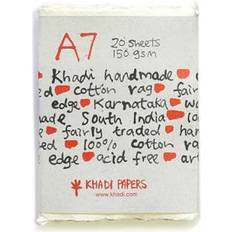 A7 20 sheets
150 gsm
Khadi handmade
cotton rag
edge Karnataka
made South India 10
fairly traded
hand 100% cotton rag
edge acid free art
KHADI PAPERS
www.khadi.com